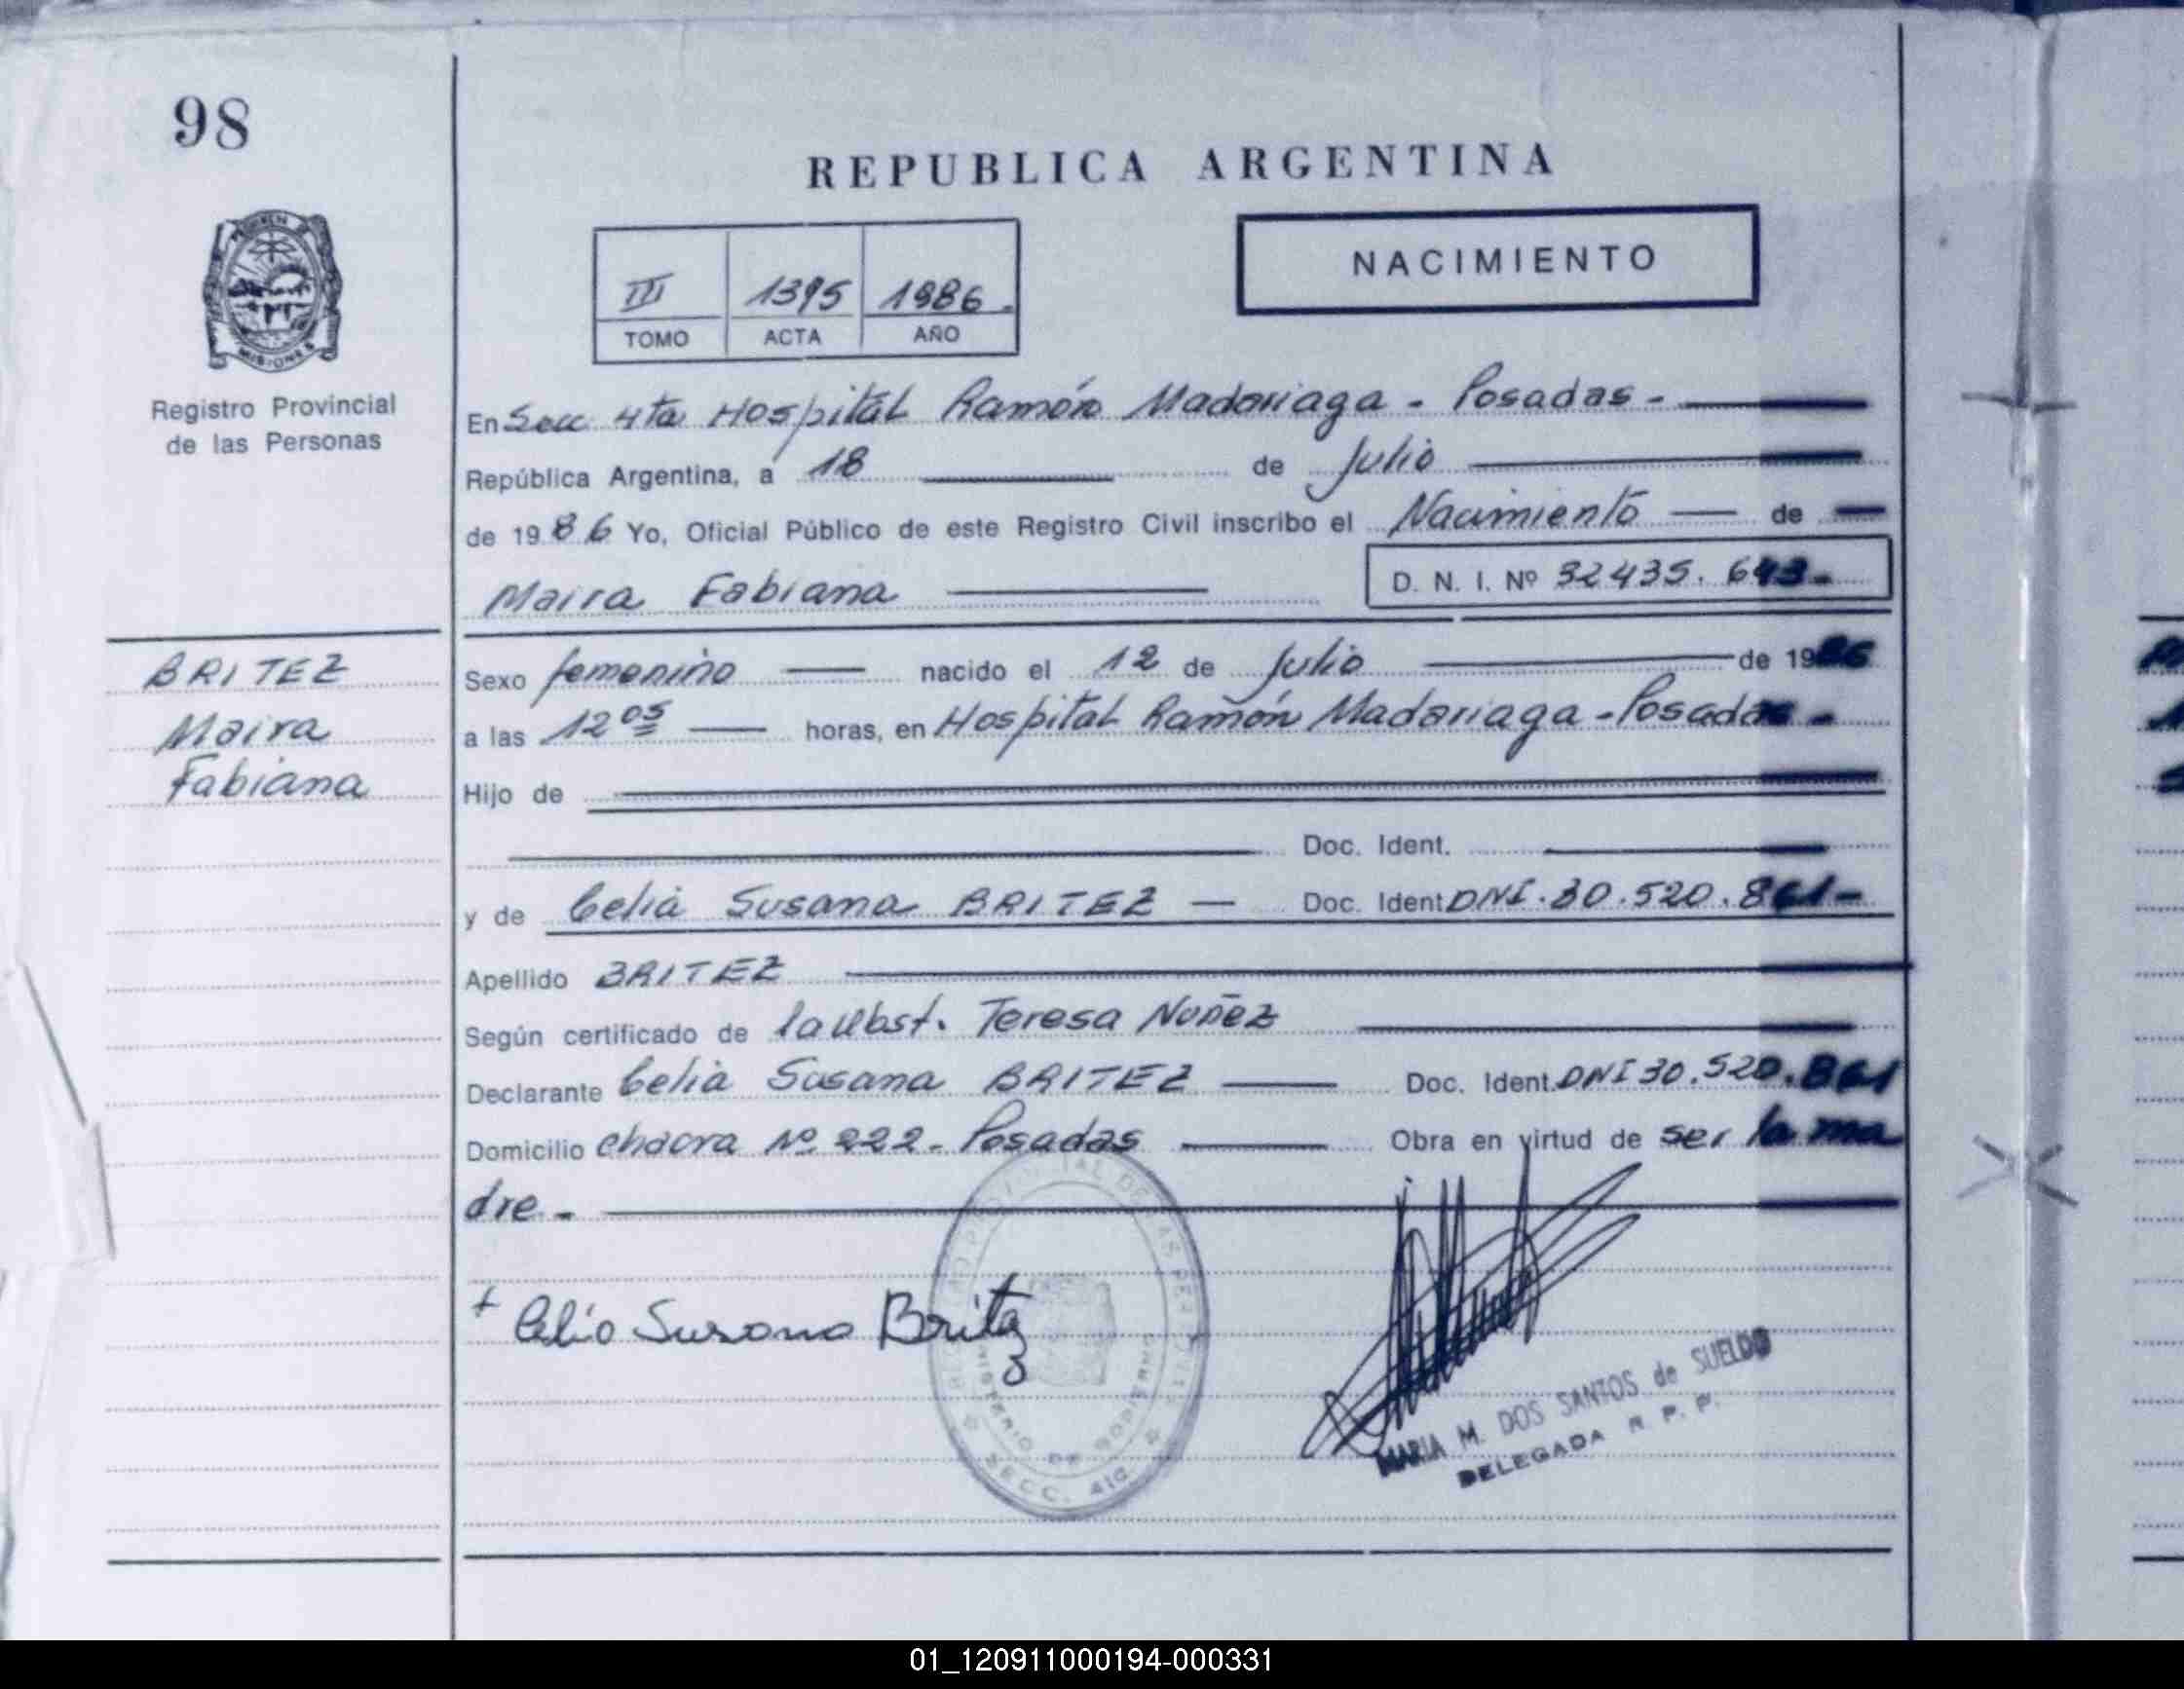 98
REPUBLICA ARGENTINA
NACIMIENTO
III 1395 1986.
TOMO ACTA AÑO
MISIONES
Registro Provincial
de las Personas
En Secc 4ta Hospital Ramón Madariaga - Posadas -
República Argentina, a 18 de Julio
de 1986 Yo, Oficial Público de este Registro Civil inscribo el Nacimiento de
Maira Fabiana
D. N. I. Nº 32435.643-
BRITEZ
Maira
Fabiana
Sexo femenino nacido el 12 de Julio de 1986
a las 12 05 horas, en Hospital Ramón Madariaga - Posadas -
Hijo de
Doc. Ident.
y de Celia Susana BRITEZ — Doc. Ident DNI.30.520.861-
Apellido BRITEZ
Según certificado de la Obst. Teresa Nuñez
Declarante Celia Susana BRITEZ Doc. Ident. DNI 30.520.861
Domicilio chacra Nº 222 - Posadas Obra en virtud de ser la ma
dre -
+ Celia Susana Britez
MINISTERIO DE GOBIERNO
SECC. 4ta
MARIA M. DOS SANTOS de SUELDO
DELEGADA R. P. P.
01_120911000194-000331